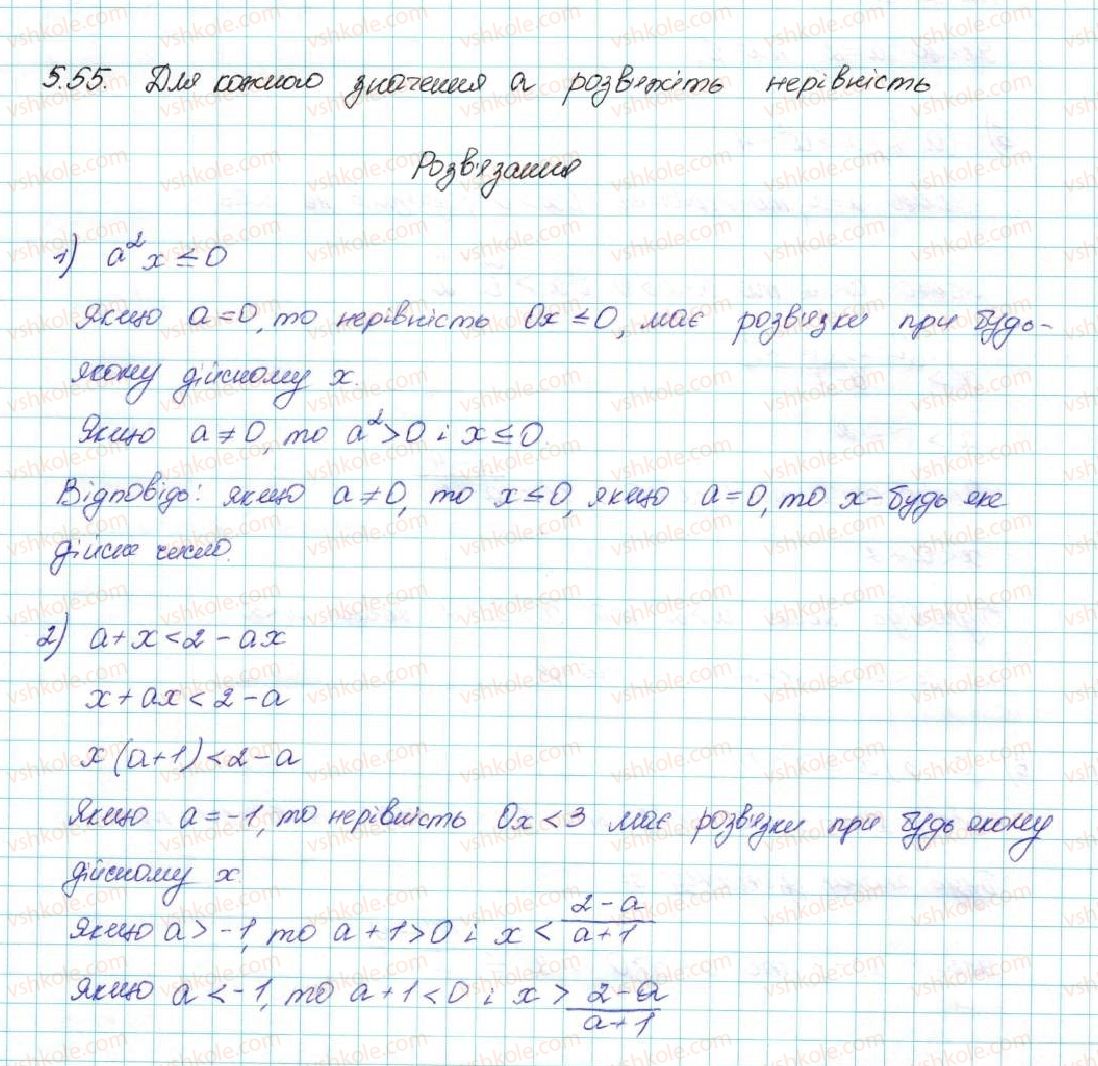 5.55. Для кожного значення a розв'яжіть нерівність
Розв'язання
1) a²x ≤ 0
Якщо a = 0, то нерівність 0x ≤ 0, має розв'язки при будь-
якому дійсному x.
Якщо a ≠ 0, то a² > 0 і x ≤ 0.
Відповідь: якщо a ≠ 0, то x ≤ 0, якщо a = 0, то x – будь яке
дійсне число.
2) a + x < 2 - ax
x + ax < 2 - a
x (a+1) < 2 - a
Якщо a = -1, то нерівність 0x < 3 має розв'язки при будь якому
дійсному x.
Якщо a > -1, то a + 1 > 0 і x < (2-a)/(a+1)
Якщо a < -1, то a + 1 < 0 і x > (2-a)/(a+1)